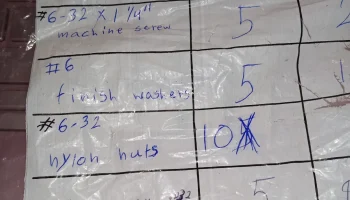 #6-32 x 1 1/4" 5 2
machine screw
#6
finish washers 5 1
#6-32
nylon nuts 10
5